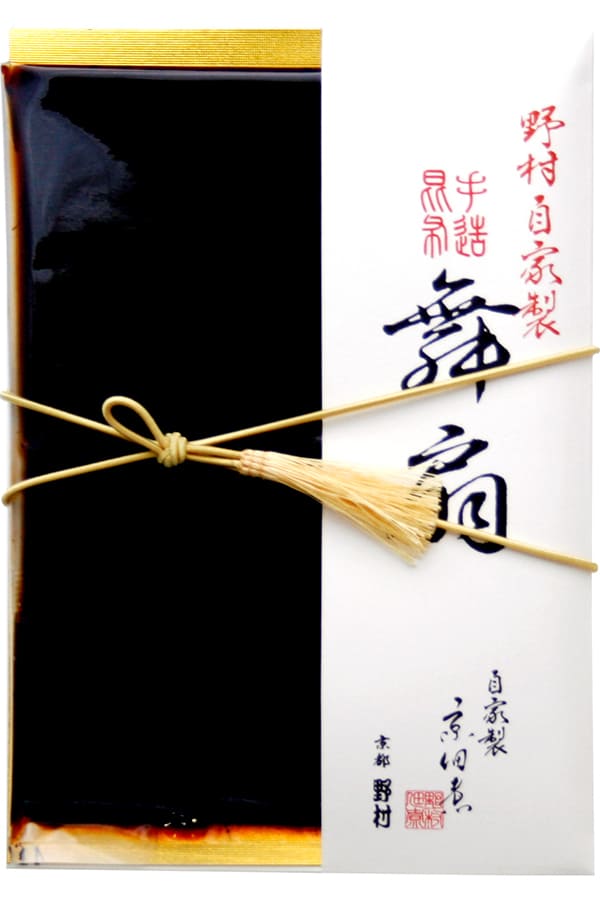 野村自家製
手造
昆布
舞扇
自家製
京佃煮
京都 野村